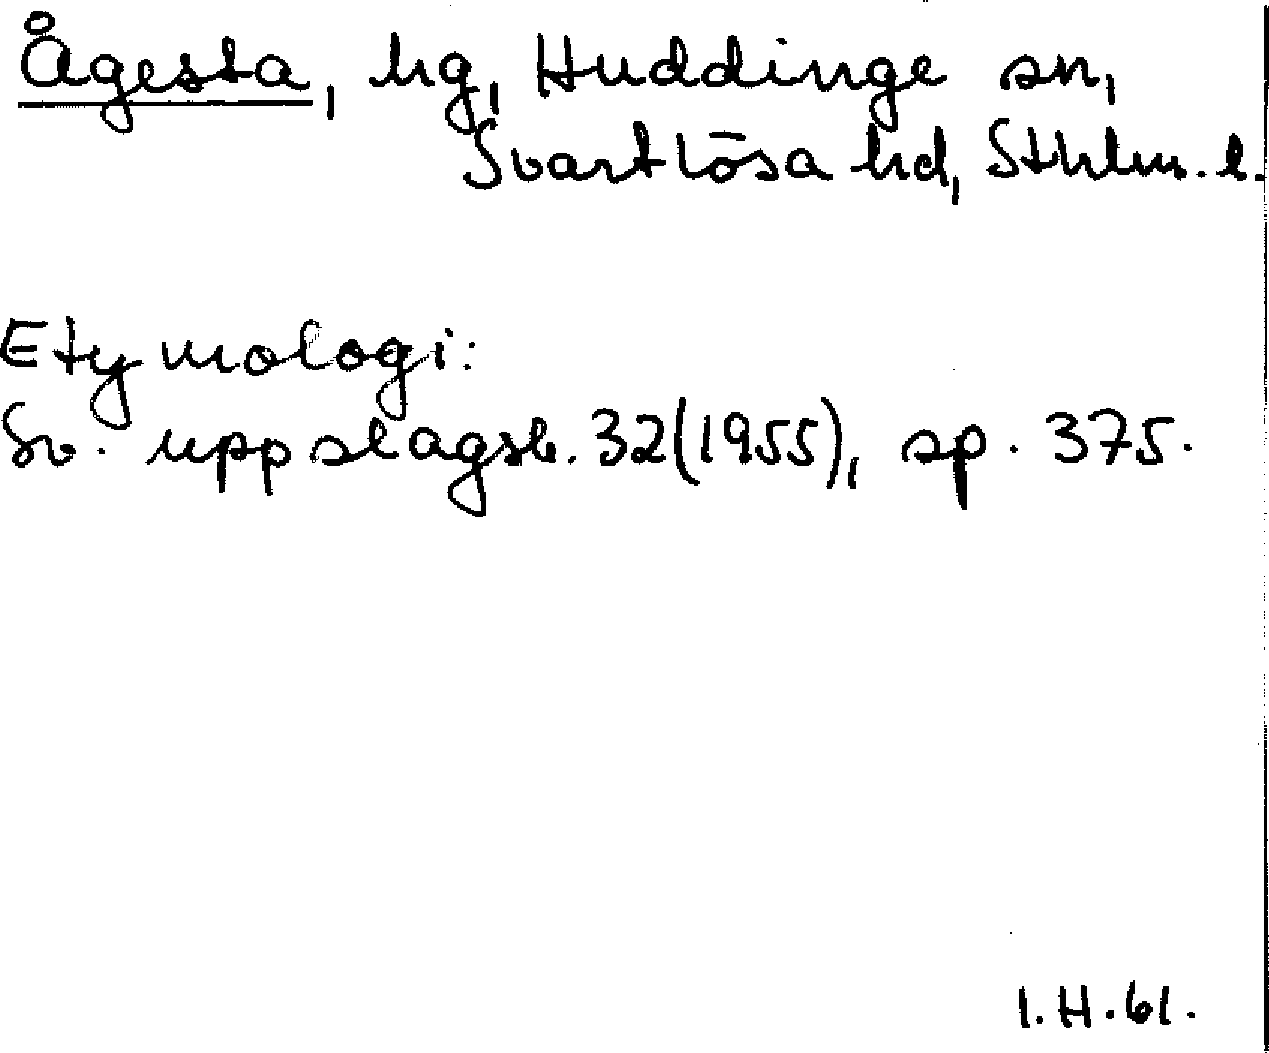 Ågesta, hg, Huddinge sn,
Svartlösa hd, Sthlm. l.
Etymologi:
Sv. uppslagsb. 32(1955), sp. 375.
I.H.61.